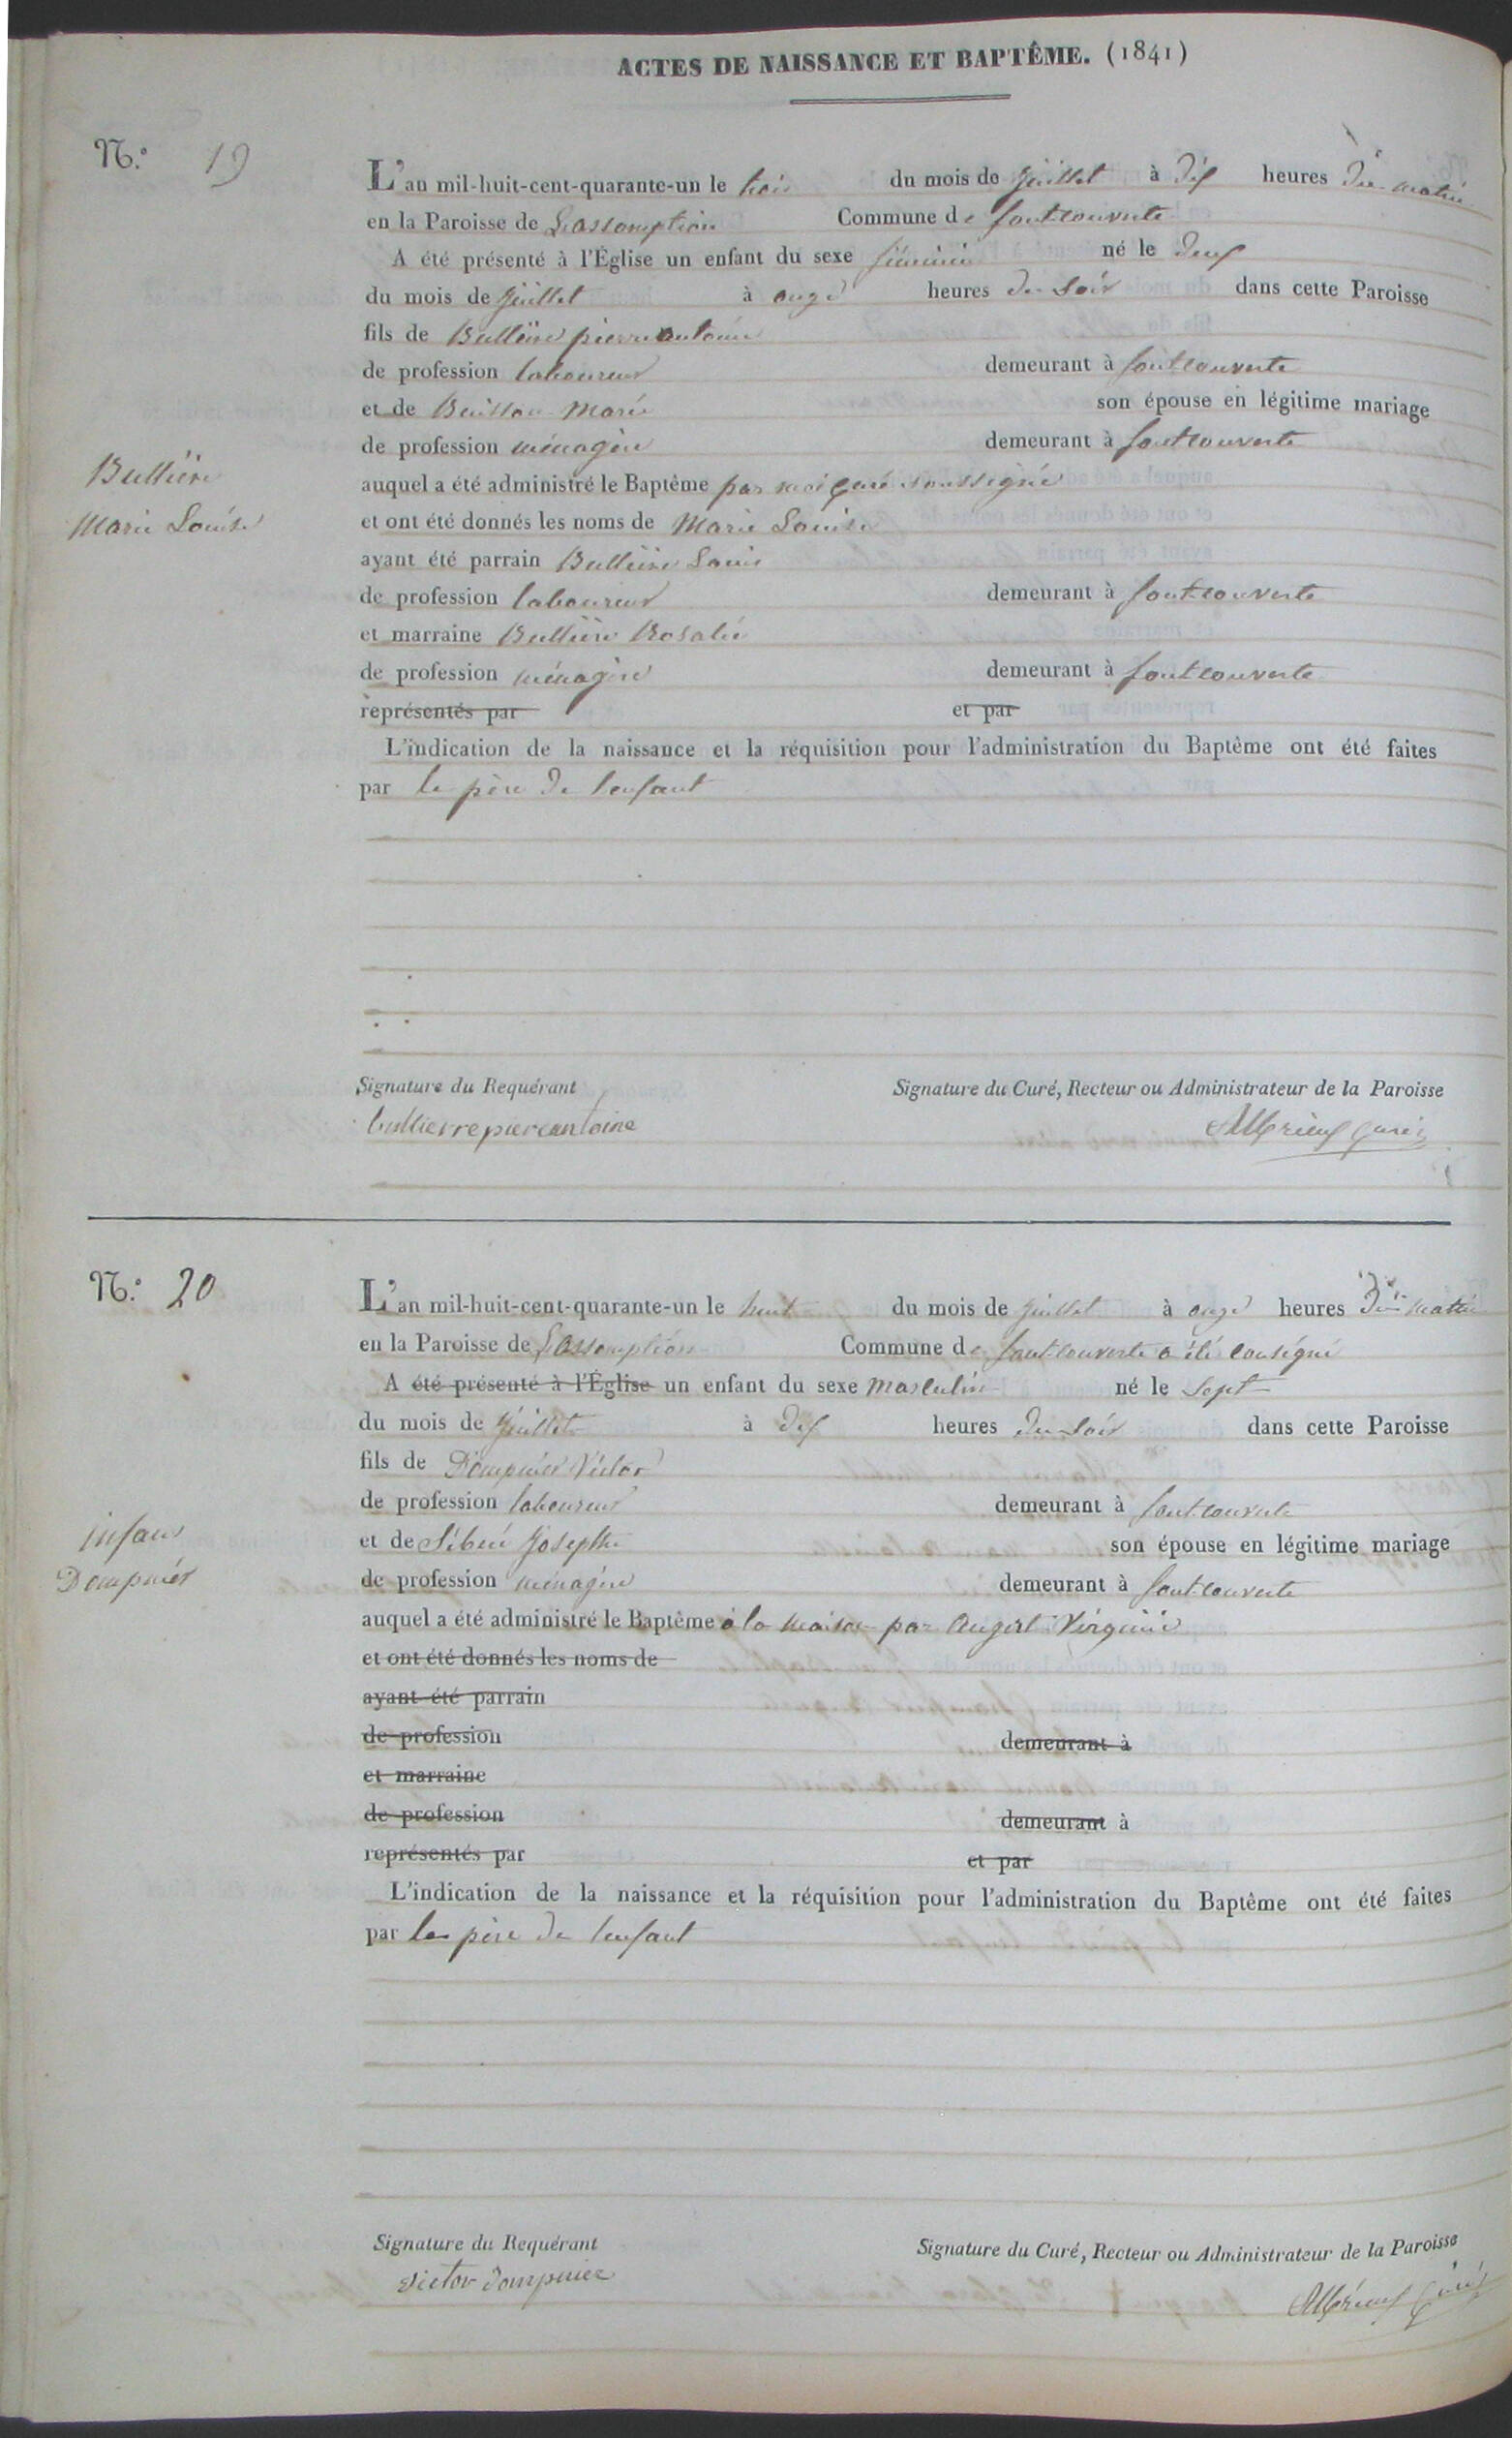 ACTES DE NAISSANCE ET BAPTÊME. (1841)
N.° 19
L'an mil-huit-cent-quarante-un le trois du mois de Juillet à dix heures du matin
en la Paroisse de Lassomption Commune de fontcouverte
A été présenté à l'Église un enfant du sexe féminin né le deux
du mois de Juillet à onze heures du soir dans cette Paroisse
fils de Bullière pierre antoine
de profession laboureur demeurant à fontcouverte
et de Buisson Marie son épouse en légitime mariage
de profession ménagère demeurant à fontcouverte
Bullière
Marie Louise
auquel a été administré le Baptême par moi curé soussigné
et ont été donnés les noms de Marie Louise
ayant été parrain Bullière Louis
de profession laboureur demeurant à fontcouverte
et marraine Bullière Rosalie
de profession ménagère demeurant à fontcouverte
représentés par et par
L'indication de la naissance et la réquisition pour l'administration du Baptême ont été faites
par le père de lenfant
Signature du Requérant Signature du Curé, Recteur ou Administrateur de la Paroisse
bullierre pierre antoine curé
N.° 20
L'an mil-huit-cent-quarante-un le huit du mois de Juillet à onze heures du matin
en la Paroisse de Lassomption Commune de fontcouverte a été consigné
A été présenté à l'Église un enfant du sexe Masculin né le Sept
du mois de Juillet à dix heures du soir dans cette Paroisse
fils de Dompnier Victor
de profession laboureur demeurant à fontcouverte
et de Sibué Josephte son épouse en légitime mariage
de profession ménagère demeurant à fontcouverte
infans
Dompnier
auquel a été administré le Baptême à la maison par Augert Virginie
et ont été donnés les noms de
ayant été parrain
de profession demeurant à
et marraine
de profession demeurant à
représentés par et par
L'indication de la naissance et la réquisition pour l'administration du Baptême ont été faites
par le père de lenfant
Signature du Requérant Signature du Curé, Recteur ou Administrateur de la Paroisse
Victor Dompnier curé